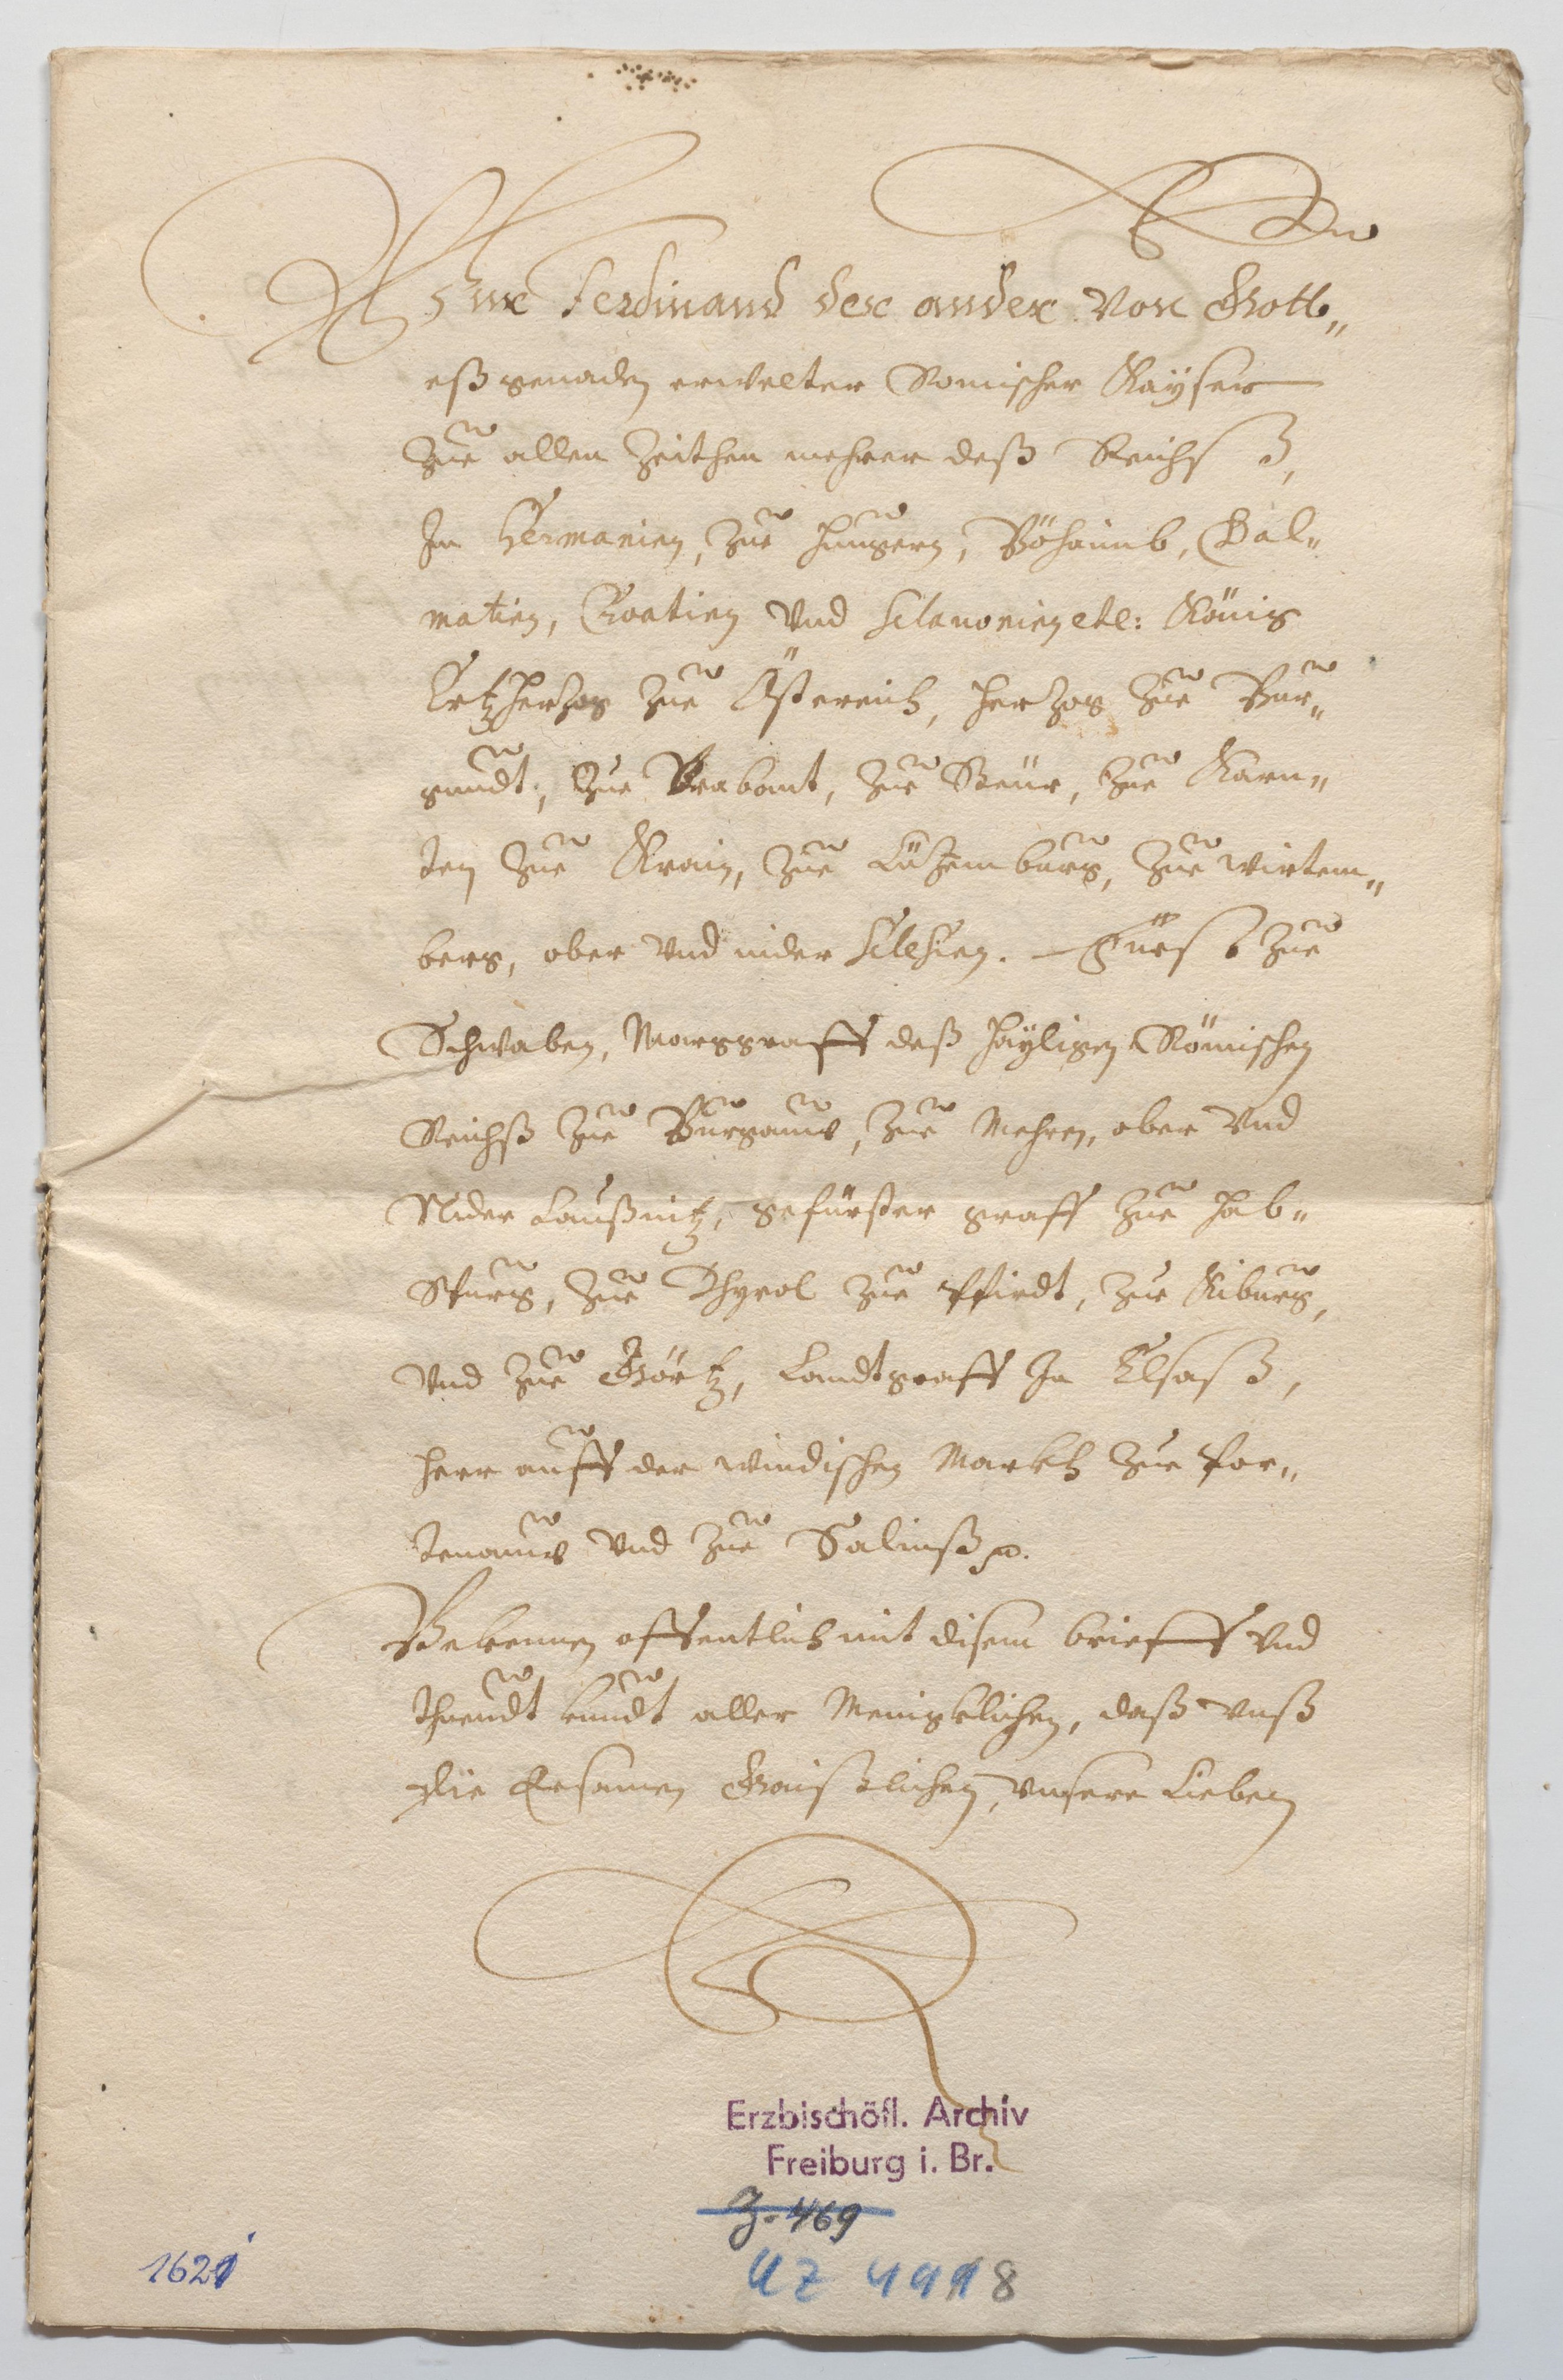 Wür Ferdinand der ander von Gott„
eß genaden erwelter Römischer Kaÿser
Zue allen Zeithen mehrer deß Reichß,
In Germanien, Zue Hungern, Böhaimb, Dal„
matien, Croatien Vnd Sclavonien etc: König
Ertzherzog Zue Össtereich, Herzog Zue Bur„
gundt, Zue Brabant, Zue Steür, Zue Karn„
ten Zue Krain, Zue Lüzemburg, Zue wirtem„
berg, ober Vnd nider Silesien. Fürst Zue
Schwaben, Marggraff deß Haÿligen Römischen
Reichß Zue Burgauw, Zue Mehren, ober Vnd
Nider Laußnitz, gefürster graff Zue Hab„
Spurg, Zue Thyrol Zue Pfirdt, Zue Kiburg,
Vnd Zue Görtz, Landtgraff In Elsaß,
Herr auff der windischen Markh Zue Por„
tenauw Vnd Zue Salinß ꝛc.
Bekennen offentlich mit disem brieff Vnd
thuendt kundt aller Menigklichen, daß Vnß
die Ersamen Gaistlichen, Vnsere Lieben
Erzbischöfl. Archiv
Freiburg i. Br.
Z. 469
UZ 4998
1621